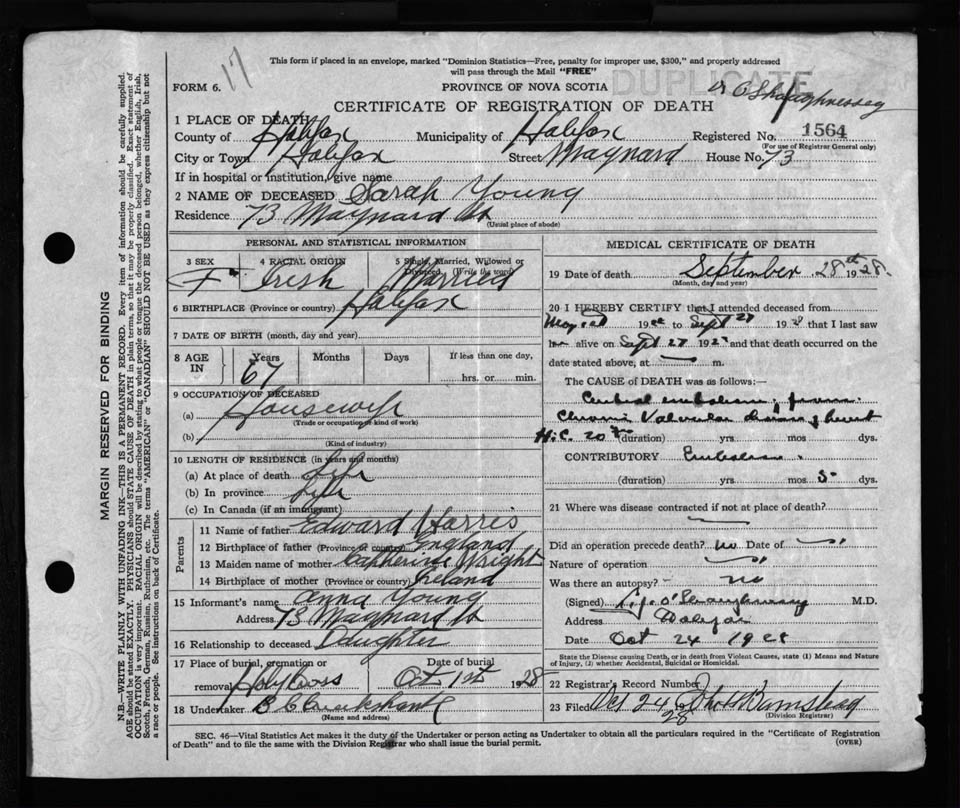 17
This form if placed in an envelope, marked "Dominion Statistics—Free, penalty for improper use, $300," and properly addressed
will pass through the Mail "FREE"
DUPLICATE
FORM 6.
PROVINCE OF NOVA SCOTIA
Dr O'Shaughnessey
CERTIFICATE OF REGISTRATION OF DEATH
1 PLACE OF DEATH
County of Halifax Municipality of Halifax Registered No. 1564
(For use of Registrar General only)
City or Town Halifax Street Maynard House No. 73
If in hospital or institution, give name
2 NAME OF DECEASED Sarah Young
Residence 73 Maynard St
(Usual place of abode)
PERSONAL AND STATISTICAL INFORMATION
3 SEX 4 RACIAL ORIGIN 5 Single, Married, Widowed or
Divorced (Write the word)
F Irish Married
6 BIRTHPLACE (Province or country) Halifax
7 DATE OF BIRTH (month, day and year)
8 AGE IN Years Months Days If less than one day,
67 hrs. or min.
9 OCCUPATION OF DECEASED
(a) Housewife
(Trade or occupation or kind of work)
(b)
(Kind of industry)
10 LENGTH OF RESIDENCE (in years and months)
(a) At place of death Life
(b) In province Life
(c) In Canada (if an immigrant)
Parents
11 Name of father Edward Harris
12 Birthplace of father (Province or country) England
13 Maiden name of mother Catherine Wright
14 Birthplace of mother (Province or country) Ireland
15 Informant's name Anna Young
Address 73 Maynard St
16 Relationship to deceased Daughter
17 Place of burial, cremation or Date of burial
removal Holy Cross Oct 1st 1928
18 Undertaker
(Name and address)
MEDICAL CERTIFICATE OF DEATH
19 Date of death September 28th 1928.
(Month, day and year)
20 I HEREBY CERTIFY that I attended deceased from
19 to Sept 27 192 that I last saw
alive on Sept 27 192 and that death occurred on the
date stated above, at m.
The CAUSE OF DEATH was as follows:—
Cerebral embolism, from
Chronic Valvular disease of heart
(duration) yrs. mos. dys.
CONTRIBUTORY Embolism
(duration) yrs. mos. 5 dys.
21 Where was disease contracted if not at place of death?
Did an operation precede death? no Date of
Nature of operation
Was there an autopsy? no
(Signed) O'Shaughnessy M.D.
Address Halifax
Date Oct 24 1928
State the Disease causing Death, or in death from Violent Causes, state (1) Means and Nature
of Injury, (2) whether Accidental, Suicidal or Homicidal.
22 Registrar's Record Number
23 Filed Oct 24 1928
(Division Registrar)
SEC. 46—Vital Statistics Act makes it the duty of the Undertaker or person acting as Undertaker to obtain all the particulars required in the "Certificate of Registration
of Death" and to file the same with the Division Registrar who shall issue the burial permit.
(OVER)
MARGIN RESERVED FOR BINDING
N.B.—WRITE PLAINLY WITH UNFADING INK—THIS IS A PERMANENT RECORD. Every item of information should be carefully supplied.
AGE should be stated EXACTLY. PHYSICIANS should STATE CAUSE OF DEATH in plain terms, so that it may be properly classified. Exact statement of
OCCUPATION is very important. RACIAL ORIGIN will be described by stating to what people or tongue the deceased person belonged, whether English, Irish,
Scotch, French, German, Russian, Ruthenian, etc. The terms "AMERICAN" or "CANADIAN" SHOULD NOT BE USED as they express citizenship but not
a race or people. See instructions on back of Certificate.